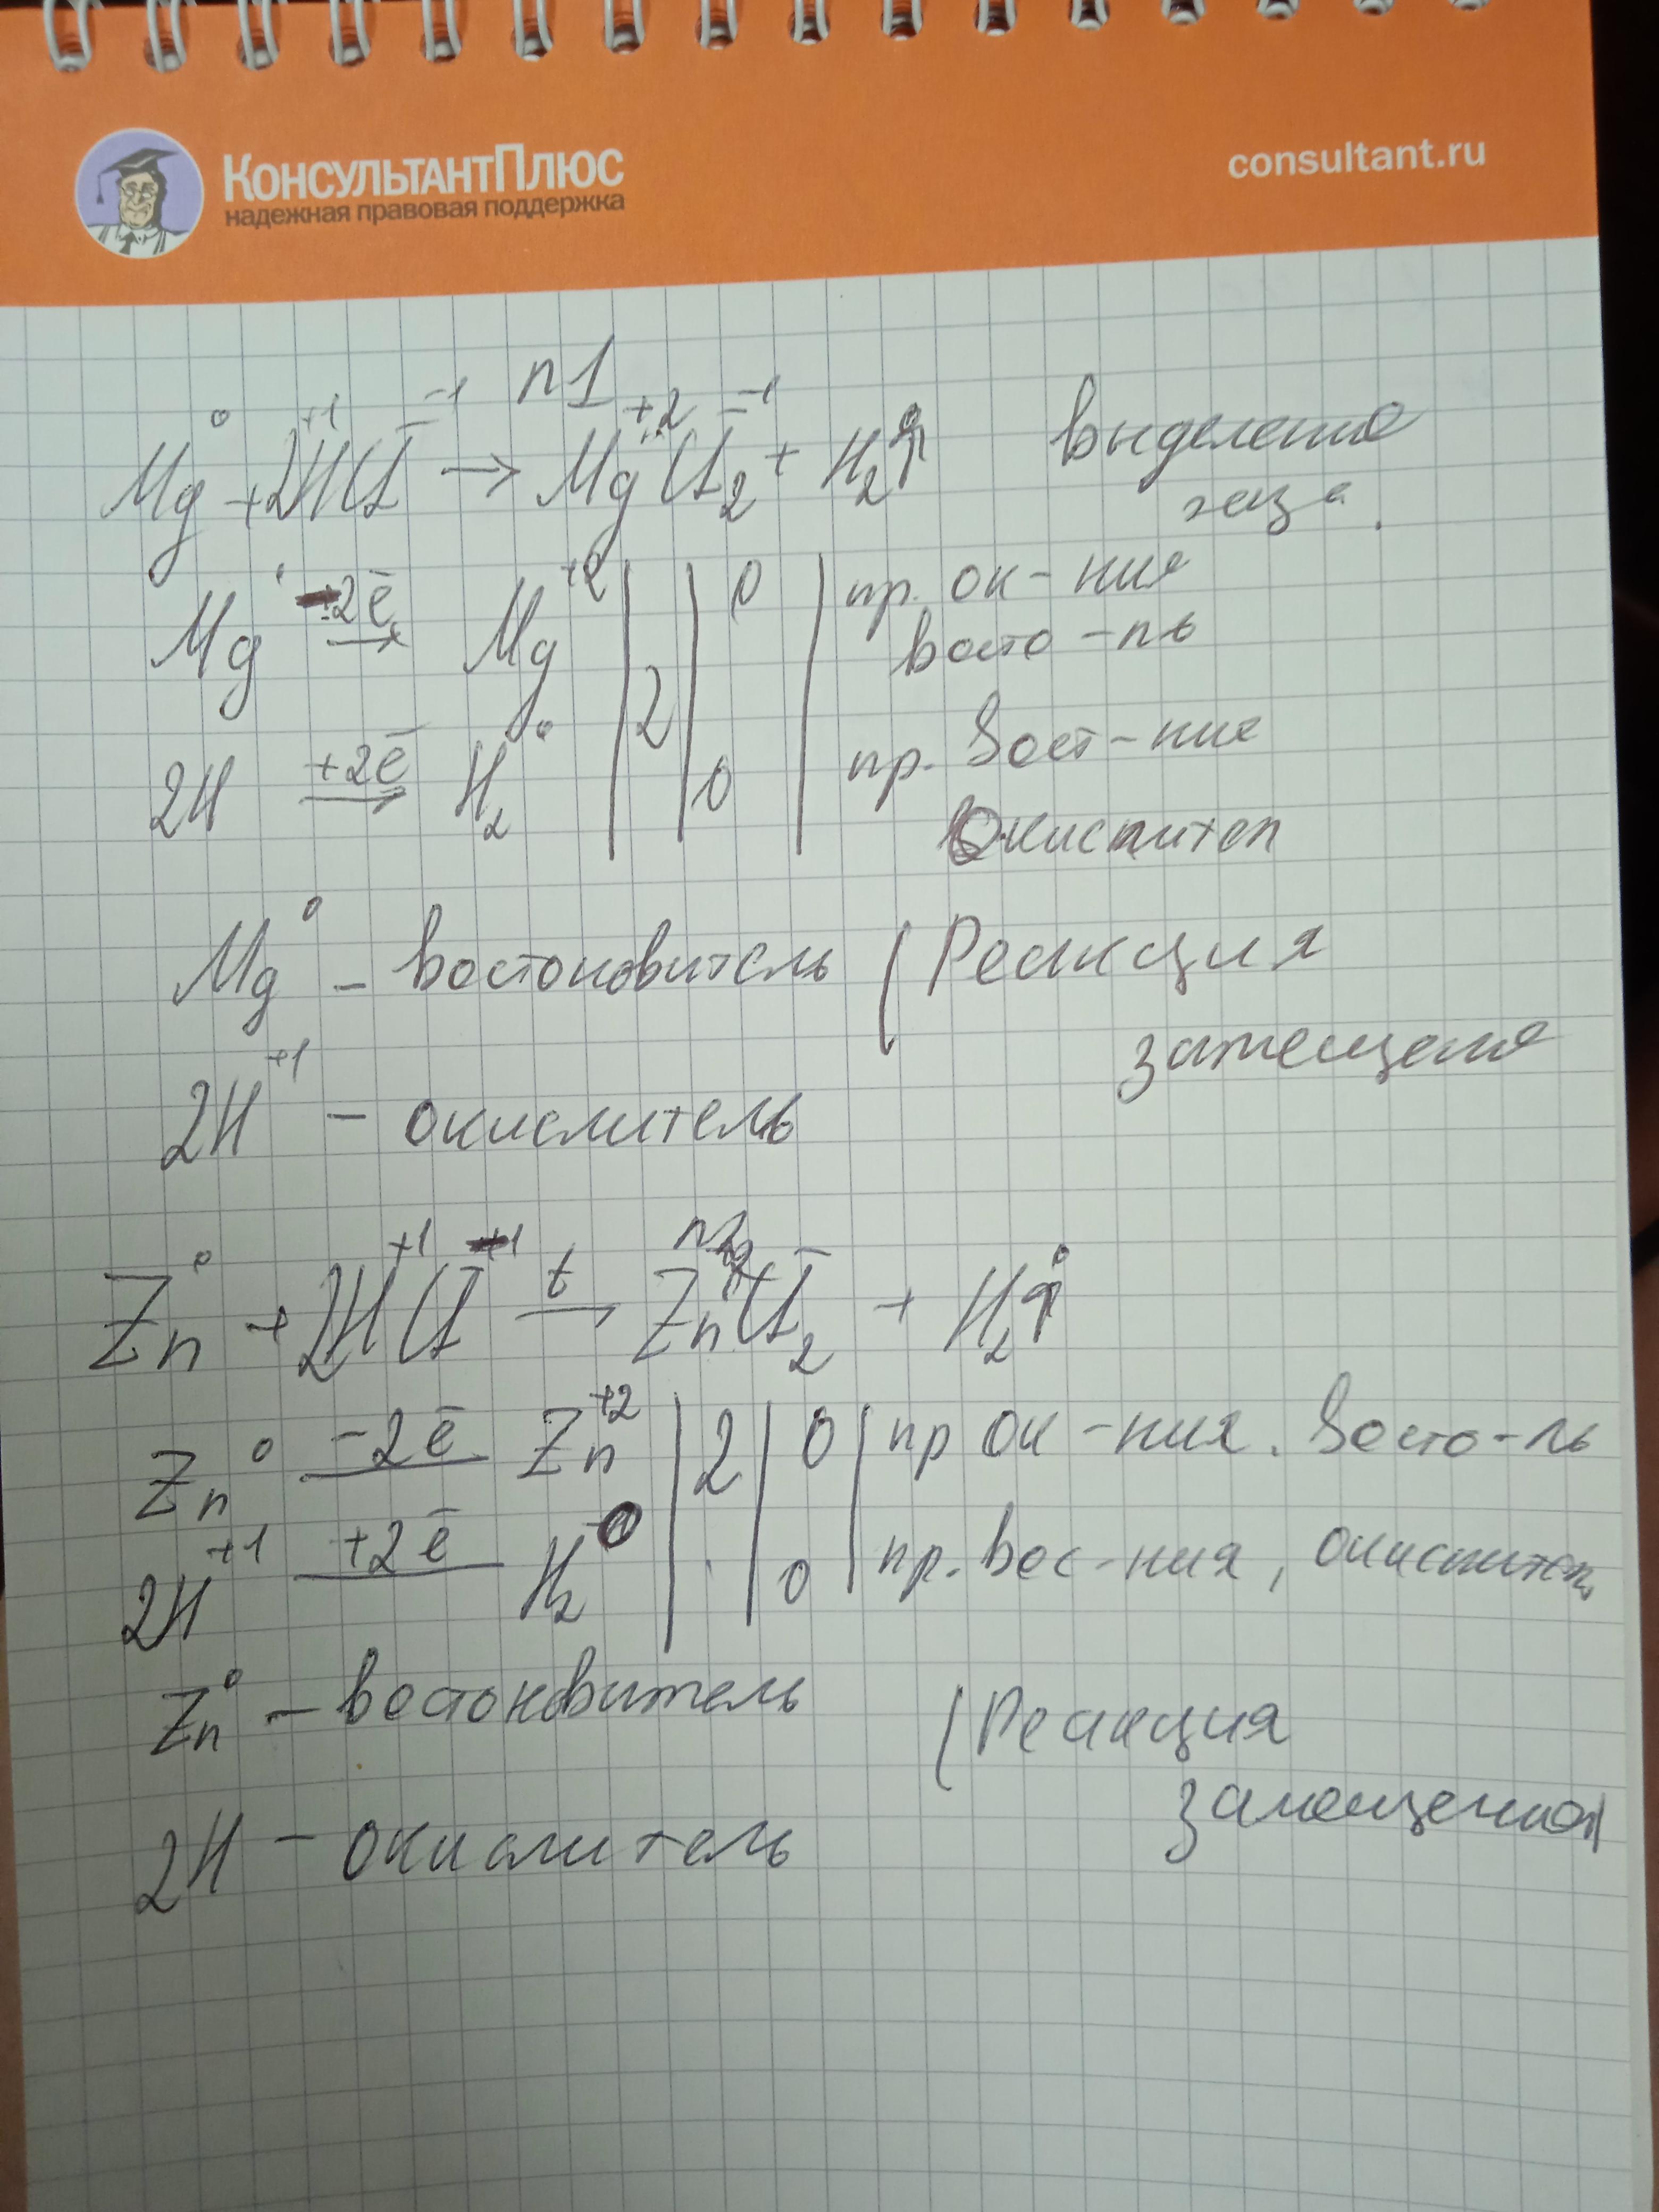 КонсультантПлюс
надежная правовая поддержка
consultant.ru
n1
Mg⁰ + 2H⁺¹Cl⁻¹ → Mg⁺²Cl₂⁻¹ + H₂⁰↑ выделение
газа.
Mg -2ē → Mg⁺² | 2 | 0 | пр. ок-ния
восто-ль
2H +2ē → H₂⁰ | 0 | пр. вост-ния
Окислител
Mg⁰ – востоновитель / Реакция
замещения
2H⁺¹ – окислитель
n2
Zn⁰ + 2H⁺¹Cl⁻¹ t → Zn⁺²Cl₂⁻ + H₂⁰↑
Zn⁰ -2ē Zn⁺² | 2 | 0 | пр ок-ния. Восто-ль
2H⁺¹ +2ē H₂⁰ | 0 | пр. вос-ния, окислител
Zn⁰ – востоновитель / Реакция
замещения
2H – окислитель